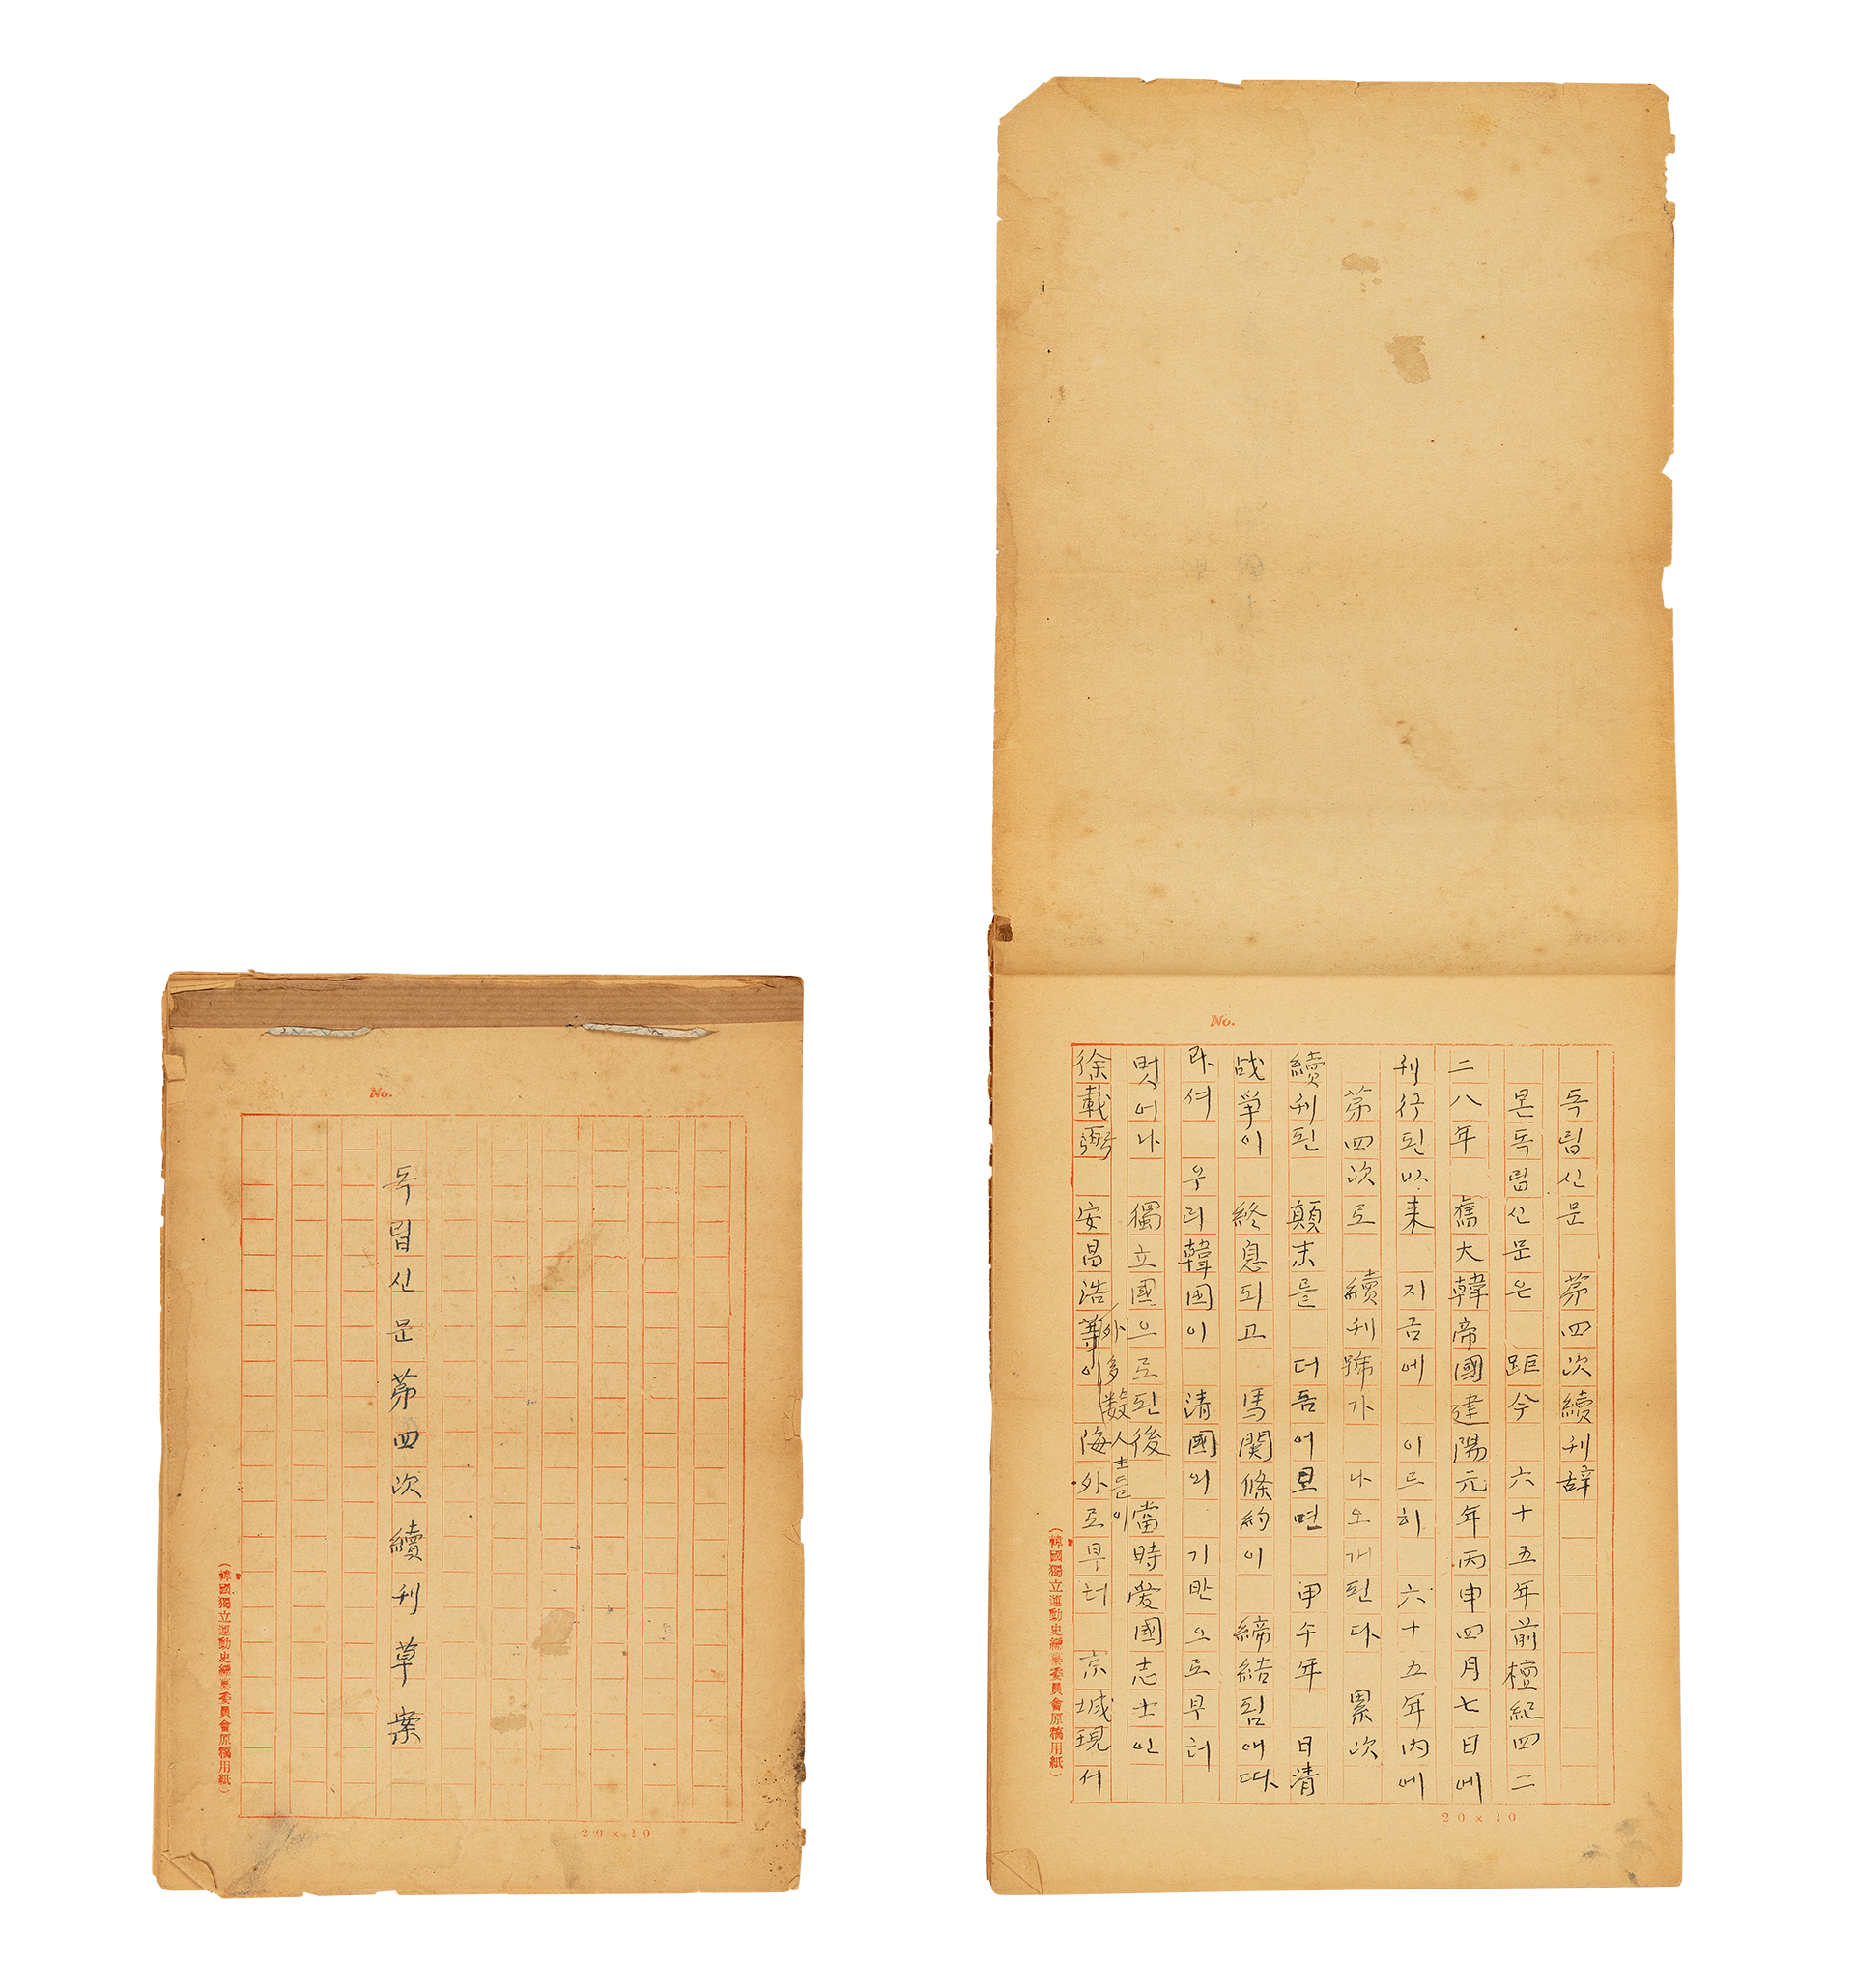 No.
독립신문第四次續刊草案
(韓國獨立運動史編纂委員會原稿用紙)
20×20
No.
독립신문 第四次續刊辞
본독립신문은 距今 六十五年前檀紀四二
二八年 舊大韓帝國建陽元年丙申四月七日에
刊行된以来 지금에 이르히 六十五年內에
第四次로 續刊號가 나오개된다 累次
續刊된 顛末를 더듬어보면 甲午年 日淸
战爭이 終息되고 馬関條約이 締結됨애따
라셔 우리韓国이 淸國의 기반으로부터
벗어나 獨立國으로된後 當時愛國志士인
徐載弼 安昌浩等이 海外로부터 京城現서
外多数人士들이
(韓國獨立運動史編纂委員會原稿用紙)
20×20